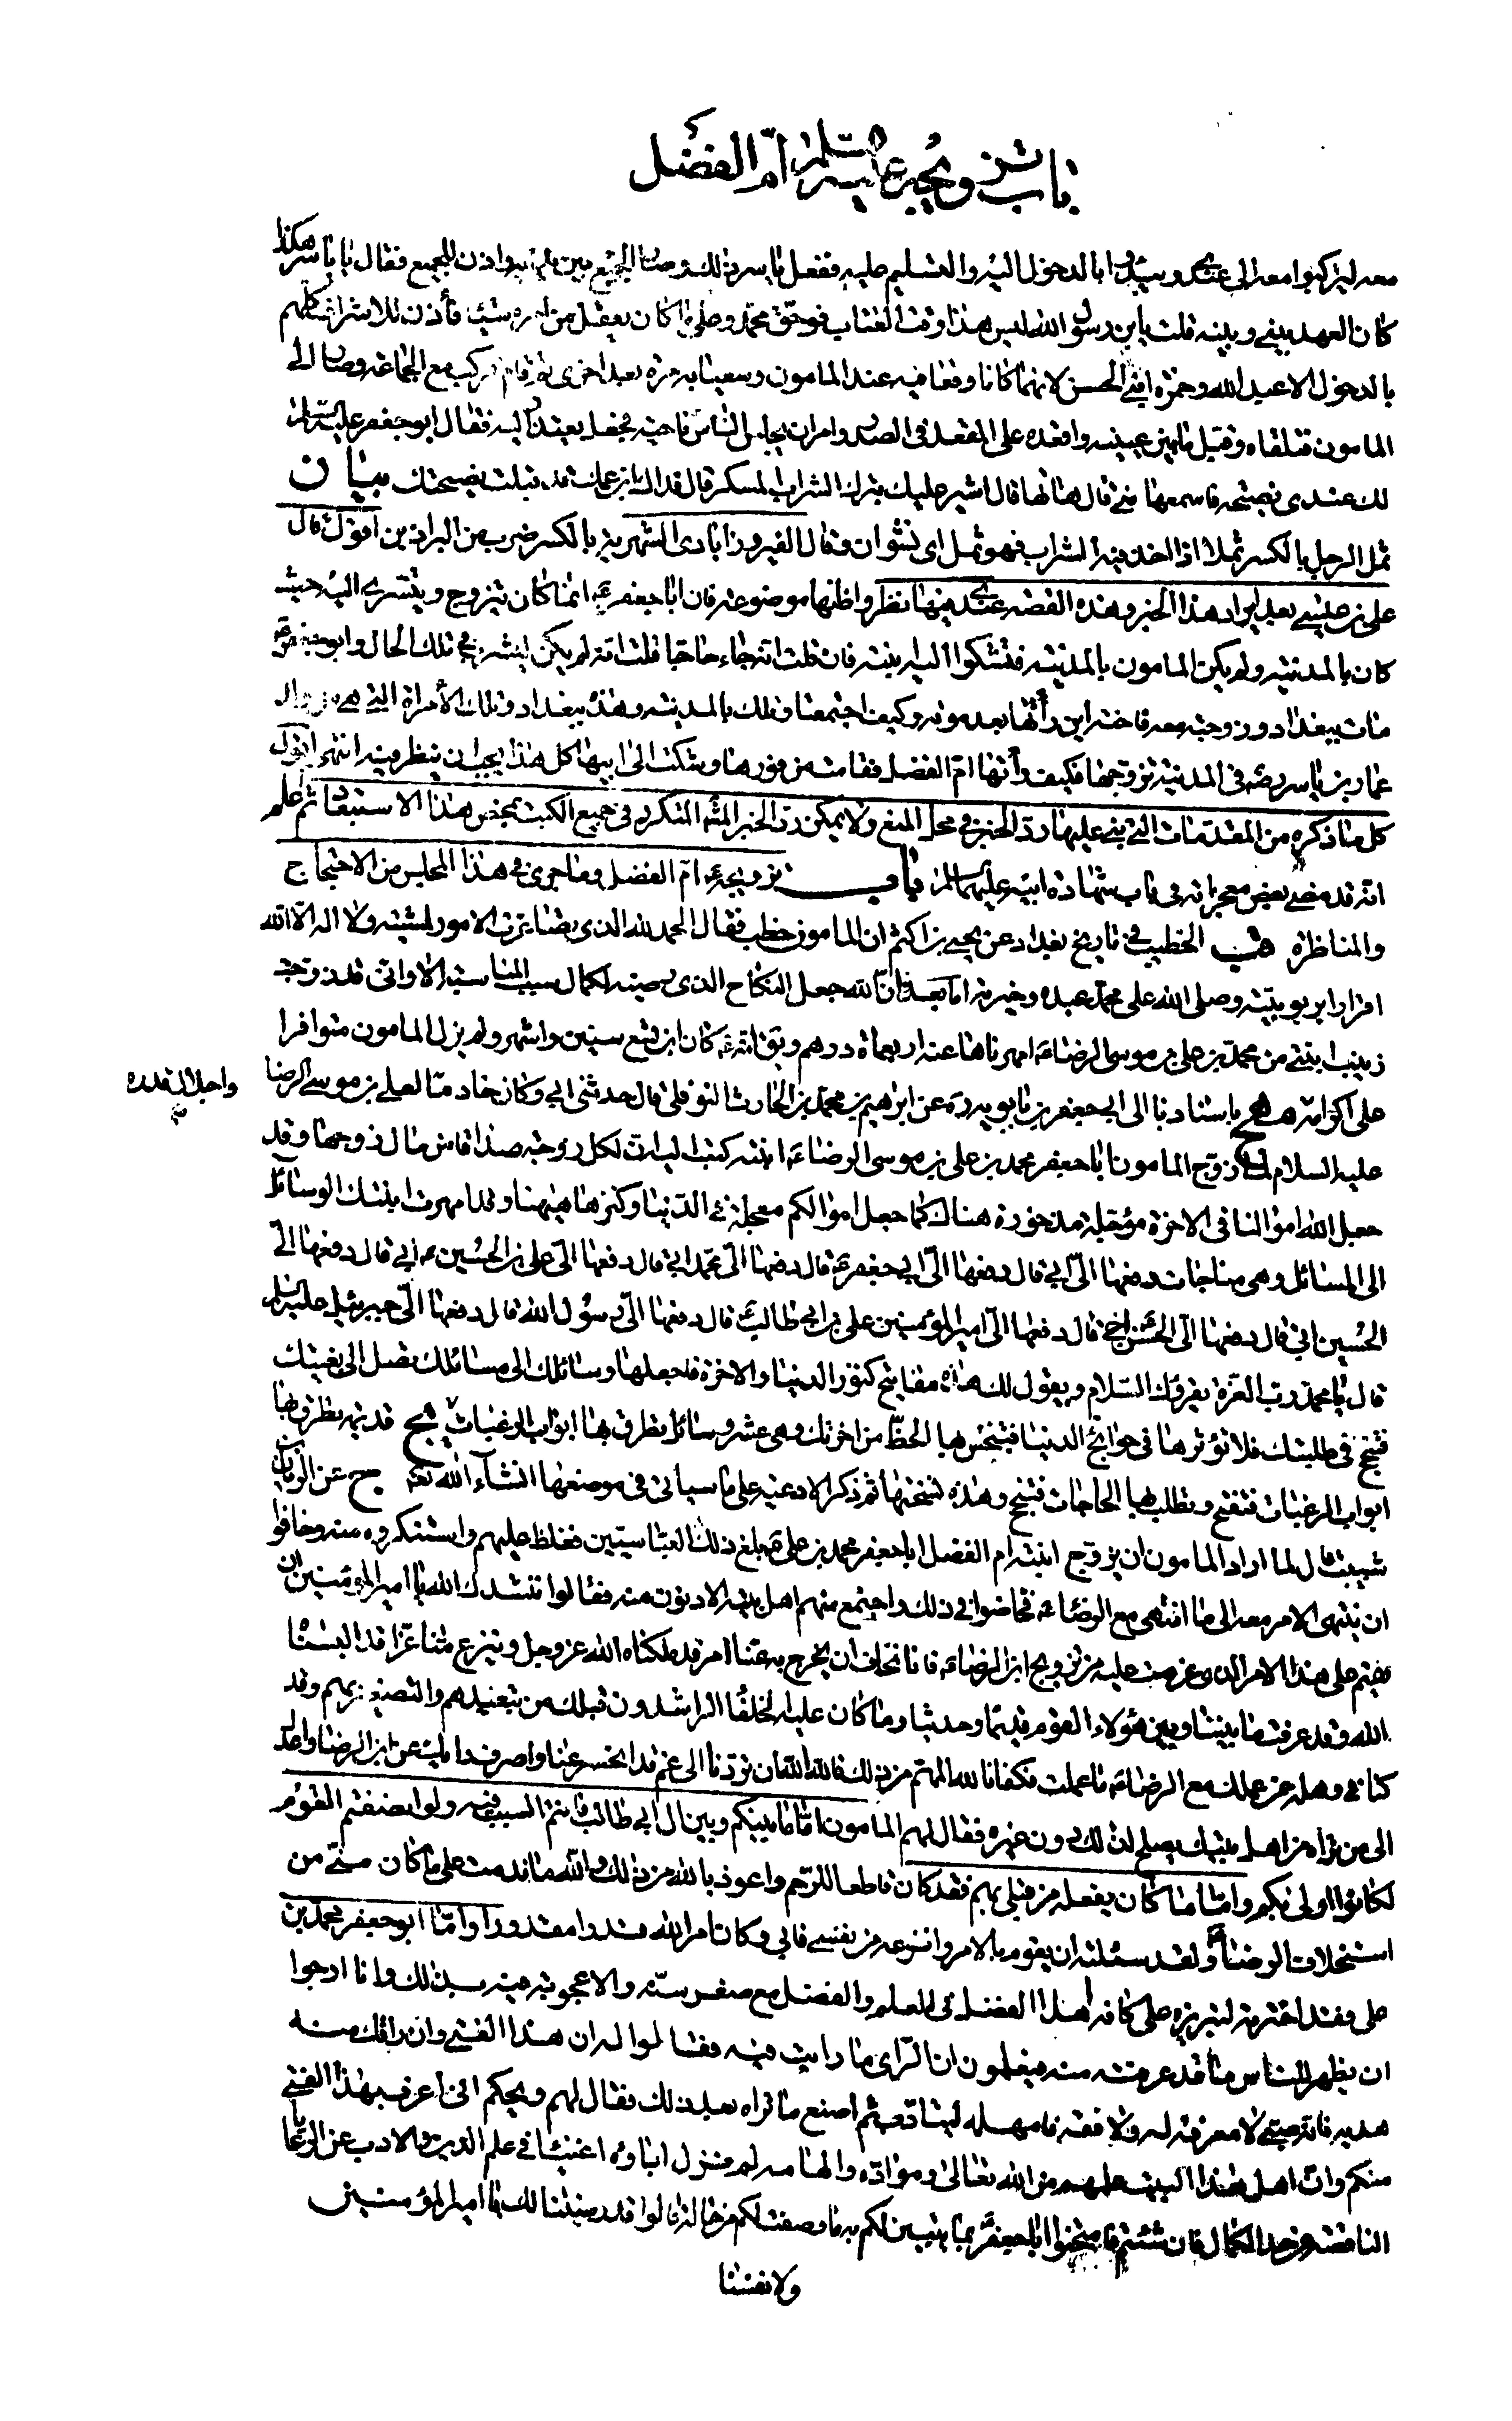 باب تزويجه عليه السلام أم الفضل
معه ليركبوا معه الى عند ويبدوا بالدخول اليه والتسليم عليه ففعل ياسر ذلك وصار الجميع بين يديه واذن للجميع فقال يا ياسر هكذا
كان العهد بيني وبينه قلت يا بن رسول الله ليس هذا وقت العتاب فوحق محمد وعلي ما كان يعقل من امره شيئا فأذن للاشراف كلهم
بالدخول الا عبد الله وحمزة ابني الحسن لانهما كانا وقعا فيه عند المامون وسعيا به مرة بعد اخرى ثم قام فركب مع الجماعة وصار الى
المامون فتلقاه وقبل ما بين عينيه واقعده على المقعد في الصدر وامر ان يجلس الناس ناحية فجعل يعتذر اليه فقال ابو جعفر عليه السلام
لك عندي نصيحة فاسمعها مني قال هاتها قال اشير عليك بترك الشراب المسكر قال فداك ابن عمك قد قبلت نصيحتك بيان
ثمل الرجل بالكسر ثملا اذا اخذ فيه الشراب فهو ثمل اى نشوان وقال الفيروزابادى الشهريز بالكسر ضرب من البراذين اقول قال
علي بن عيسى بعد ايراد هذا الخبر وهذه القصة عندي فيها نظر واظنها موضوعة فان ابا جعفر ع انما كان يتزوج ويتسرى اليه حيث
كان بالمدينة ولم يكن المامون بالمدينة فتشكوا اليه بنته فان قلت انه جاء حاجا قلت انه لم يكن ليشرب في تلك الحال وابو جعفر ع
مات ببغداد وزوجته معه فاخته اين رأتها بعد موته وكيف اجتمعتا وتلك بالمدينة وهذه ببغداد وتلك الأمراة التي هي من ولد
عمار بن ياسر رضه في المدينة تزوجها فكيف رأتها ام الفضل فقامت من فورها وشكت الى ابيها كل هذا يجب ان ينظر فيه انتهى اقول
كل ما ذكره من المقدمات التي بنى عليها رد الخبر في محل المنع ولا يمكن رد الخبر المشهور المتكرر في جميع الكتب بمحض هذا الاستبعاد ثم اعلم
انه قد مضى بعض معجزاته في باب شهادة ابيه عليهما السلم باب تزويجه ع ام الفضل وما جرى في هذا المجلس من الاحتجاج
والمناظرة قب الخطيب في تاريخ بغداد عن يحيى بن اكثم ان المامون خطب فقال الحمد لله الذى تصاغرت الامور لمشيته ولا اله الا الله
اقرارا بربوبيته وصلى الله على محمد عبده وخيرته اما بعد فان الله جعل النكاح الذى رضيه لكمال سبب المناسبة الا وانى قد زوجت
زينب ابنتي من محمد بن علي بن موسى الرضا ع امهرناها عنه اربعمائة درهم ويق انه ع كان ابن تسع سنين واشهر ولم يزل المامون متوافرا
على اكرامه مهج باسنادنا الى ابي جعفر بن بابويه ره عن ابراهيم بن محمد بن الحارث النوفلى قال حدثني ابي وكان خادما لعلي بن موسى الرضا
واجلال قدره
صح
عليه السلام لما زوج المامون ابا جعفر محمد بن علي بن موسى الرضا ع ابنته كتب اليه ان لكل زوجة صداقا من مال زوجها وقد
جعل الله اموالنا في الاخرة مؤجلة مذخورة هناك كما جعل اموالكم معجلة في الدنيا وكنزها هيهنا وقد امهرت ابنتك الوسائل
الى المسائل وهى مناجات دفعها الي ابي قال دفعها الي ابي جعفر ع قال دفعها الي محمد ابي قال دفعها الي علي بن الحسين ع ابي قال دفعها الى
الحسين ابي قال دفعها الي الحسن اخي قال دفعها الي امير المؤمنين علي بن ابي طالب ع قال دفعها الي رسول الله قال دفعها الي جبرئيل عليه السلم
قال يا محمد رب العزة يقرؤك السلام ويقول لك هذه مفاتيح كنوز الدنيا والاخرة فاجعلها وسائلك الى مسائلك تصل الى بغيتك
فتنجح في طلبتك فلا تؤثرها في حوائج الدنيا فتبخس بها الحظ من اخرتك وهى عشر وسائل تطرق بها ابواب الرغبات
ابواب الرغبات فتفتح وتطلب بها الحاجات فتنجح وهذه نسختها ثم ذكر الادعية على ما سياتى في موضعها انشاء الله تعالى ج عن الريان بن
شبيب قال لما اراد المامون ان يزوج ابنته ام الفضل ابا جعفر محمد بن علي ع بلغ ذلك العباسيين فغلظ عليهم واستنكروه منه وخافوا
ان ينتهى الامر معه الى ما انتهى مع الرضا ع فخاضوا في ذلك واجتمع منهم اهل بيته الادنون منه فقالوا ننشدك الله يا امير المؤمنين ان
تقيم على هذا الامر الذى عزمت عليه من تزويج ابن الرضا ع فانا نخاف ان يخرج به عنا امر قد ملكناه الله عز وجل وينزع منا عزا قد البسناه
الله وقد عرفت ما بيننا وبين هؤلاء القوم قديما وحديثا وما كان عليه الخلفا الراشدون قبلك من تبعيدهم والتصغير بهم وقد
كنا في وهلة من عملك مع الرضا ع ما عملت فكفانا الله المهم من ذلك فالله الله ان تردنا الى غم قد انحسر عنا واصرف رايك عن ابن الرضا واعدل
الى من تراه من اهل بيتك يصلح لذلك دون غيره فقال لهم المامون اما ما بينكم وبين ال ابي طالب فانتم السبب فيه ولو انصفتم القوم
لكانوا اولى بكم واما ما كان يفعله من قبلي بهم فقد كان قاطعا للرحم واعوذ بالله من ذلك والله ما ندمت على ما كان منى من
استخلاف الرضا ع ولقد سئلته ان يقوم بالامر وانزعه من نفسي فابي وكان امر الله قدرا مقدورا واما ابو جعفر محمد بن
علي وقد اخترته لتبريزه على كافة اهل الفضل في العلم والفضل مع صغر سنه والاعجوبة فيه بذلك وانا ارجوا
ان يظهر للناس ما قد عرفته منه فيعلمون ان الراى ما رايت فيه فقالوا له ان هذا الفتى وان راقك منه
هديه فانه صبي لا معرفة له ولا فقه فامهله ليتادب ثم اصنع ما تراه بعد ذلك فقال لهم ويحكم انى اعرف بهذا الفتى
منكم وان اهل هذا البيت علمهم من الله تعالى ومواده والهامه لم يزل اباؤه اغنياء في علم الدين والادب عن الرعايا
الناقصة عن حد الكمال فان شئتم فامتحنوا ابا جعفر ع بما يتبين لكم به ما وصفت لكم من حاله قالوا قد رضينا لك يا امير المؤمنين
ولانفسنا